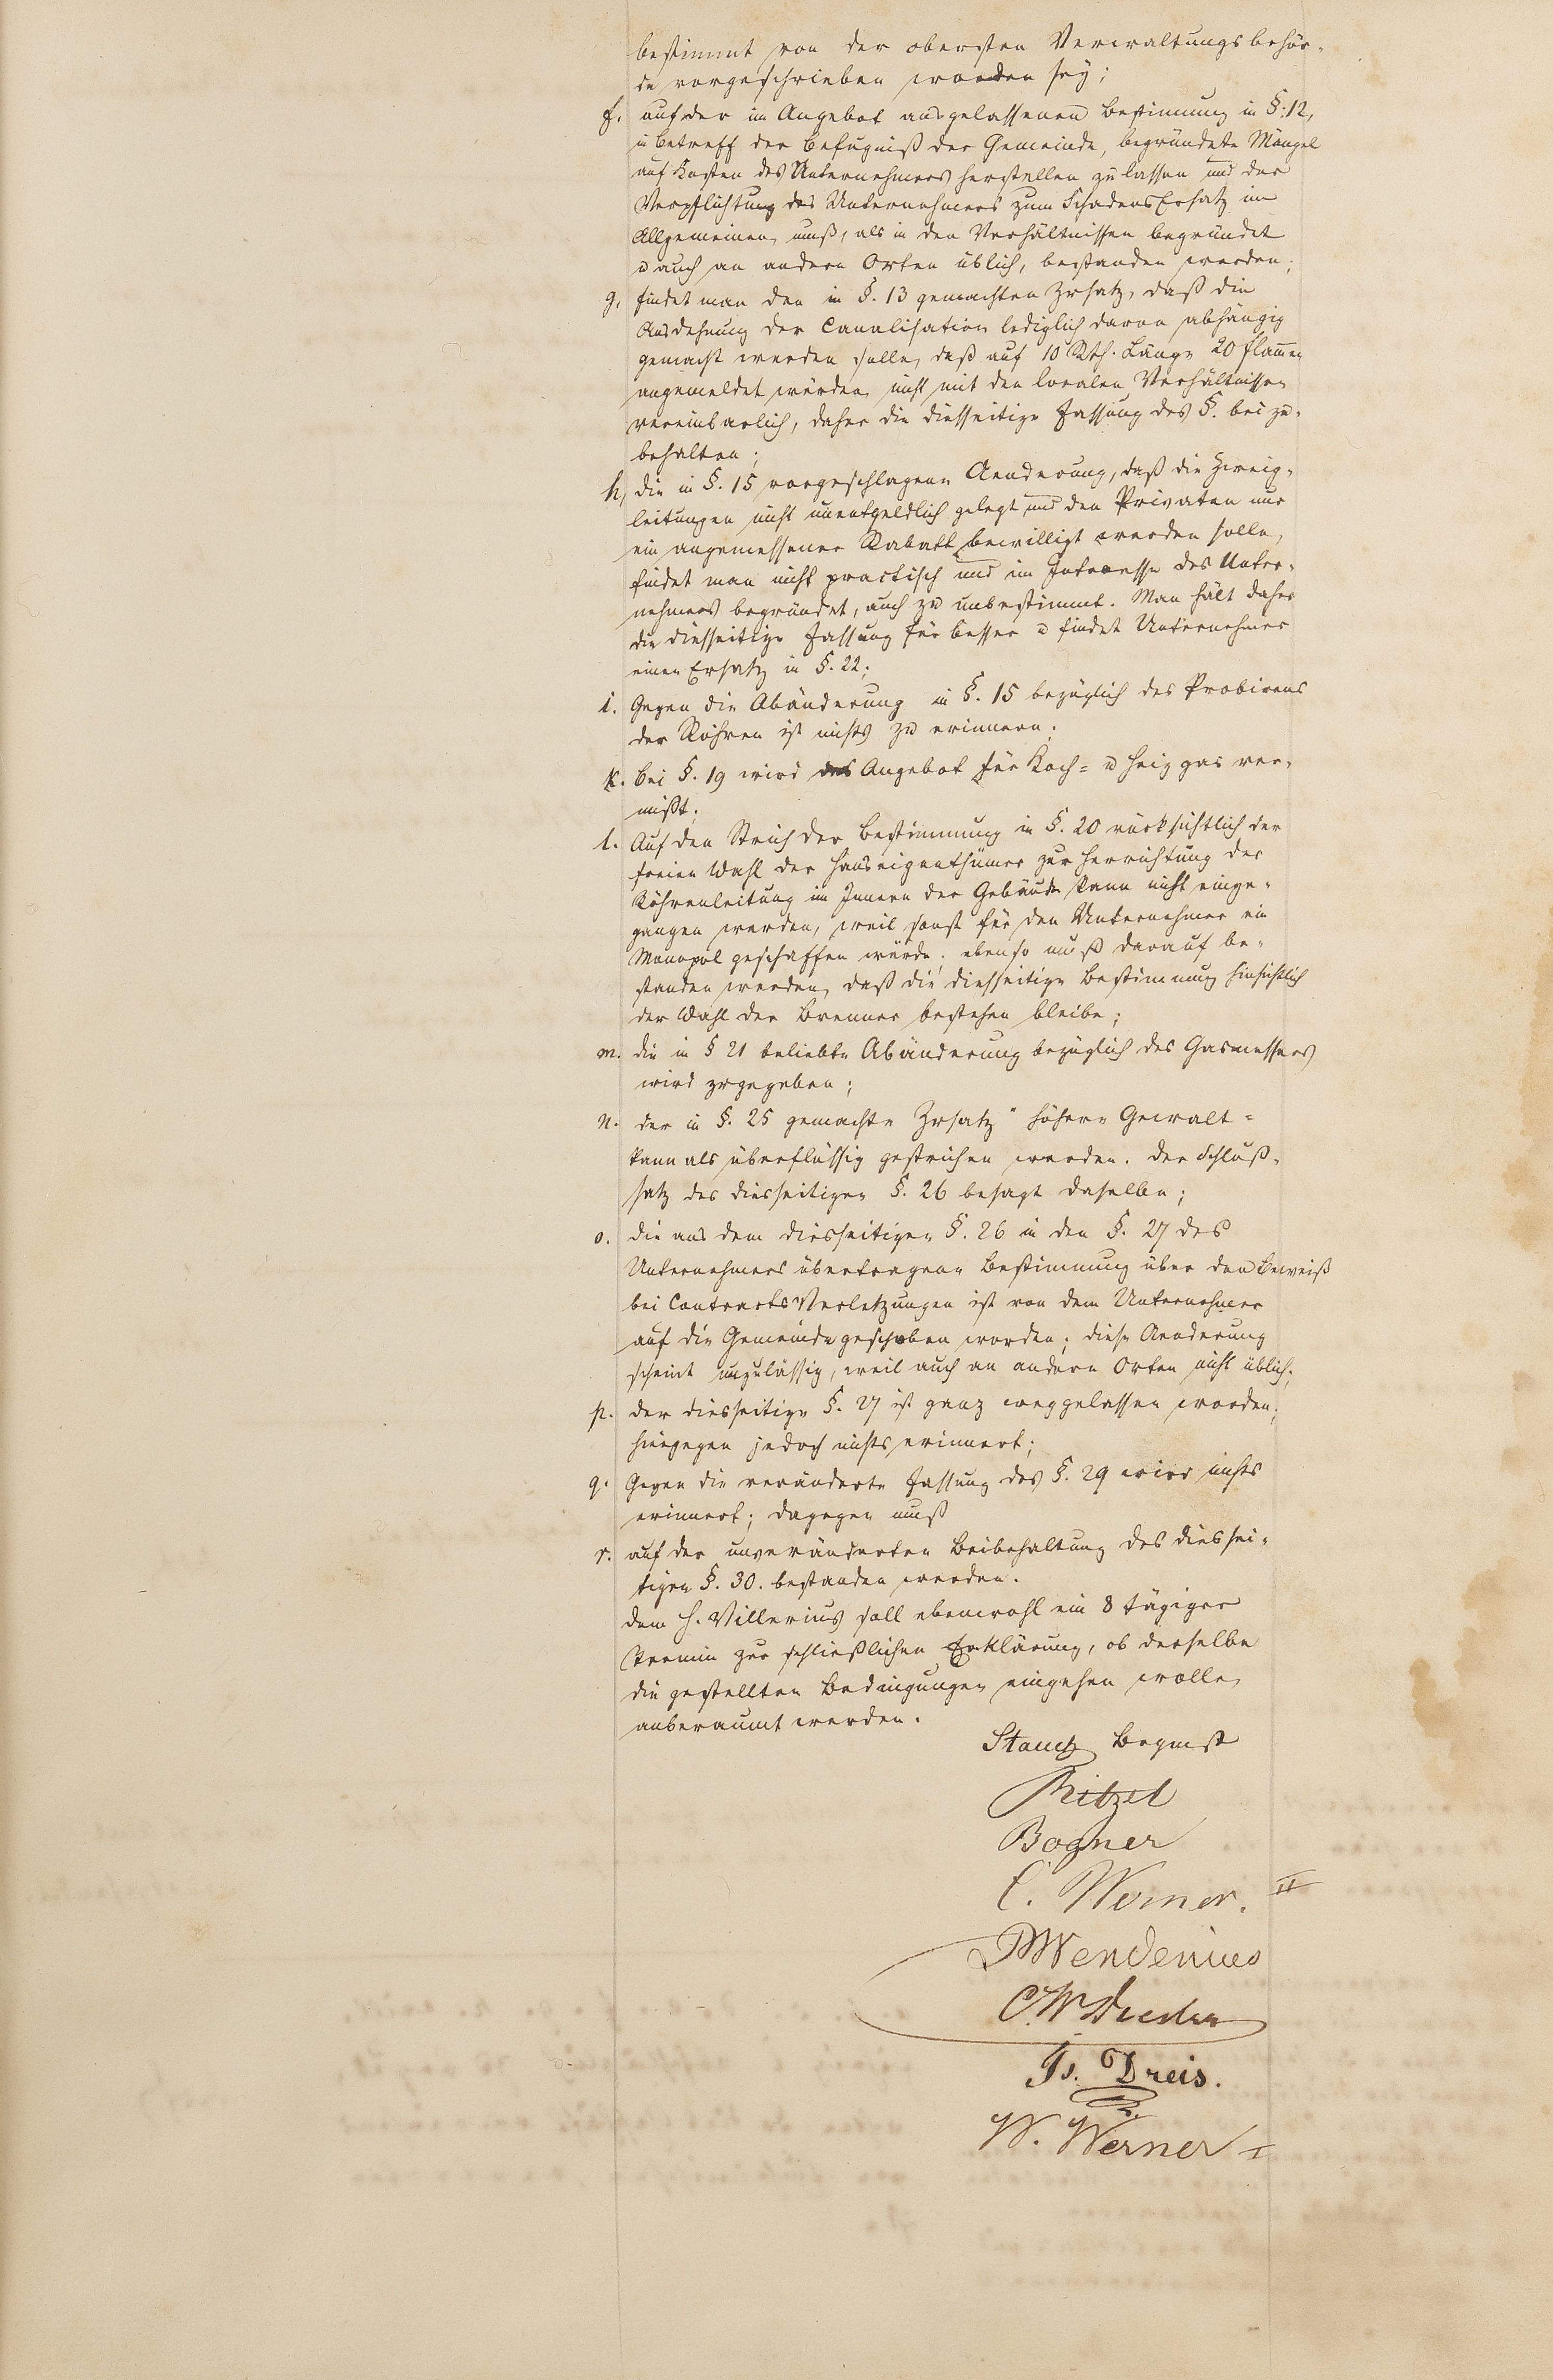 bestimmt von der obersten Verwaltungsbehör-
de vorgeschrieben worden sey;
f. auf der im Angebot ausgelassenen Bestimmung in §. 12,
in Betreff der Befugniß der Gemeinde, begründete Mängel
auf Kosten des Unternehmers herstellen zu lassen und der
Verpflichtung des Unternehmers zum SchadensErsatz im
Allgemeinen, muß, als in den Verhältnissen begründet
u auch an andern Orten üblich, bestanden werden;
g. findet man den in §. 13 gemachten Zusatz, daß die
Ausdehnung der Canalisation lediglich davon abhängig
gemacht werden solle, daß auf 10 Rth. Länge 20 Flam̄en
angemeldet würden, nicht mit den localen Verhältnissen
vereinbarlich, daher die diesseitige Fassung des §. bei zu-
behalten;
h, die in §. 15 vorgeschlagene Aenderung, daß die Zweig-
leitungen nicht unentgeldlich gelegt und den Privaten nur
ein angemessener Rabatt bewilligt werden solle,
findet man nicht practisch und im Interesse des Unter-
nehmers begründet, auch zu unbestimmt. Man hält daher
die diesseitige Fassung für besser u findet Unternehmer
einen Ersatz in §. 22;
i. Gegen die Abänderung in §. 15 bezüglich des Probirens
der Röhren ist nichts zu erinnern;
k. bei §. 19 wird das Angebot für Koch- u Heizgas ver-
mißt;
l. Auf den Strich der Bestimmung in §. 20 rücksichtlich der
freien Wahl der Hauseigenthümer zur Herrichtung der
Röhrenleitung im Innern der Gebäude kann nicht einge-
gangen werden, weil sonst für den Unternehmer ein
Monopol geschaffen würde; ebenso muß darauf be-
standen werden, daß die diesseitige Bestimmung hinsichtlich
der Wahl der Brenner bestehen bleibe;
m. die in § 21 beliebte Abänderung bezüglich des Gasmessers
wird zugegeben;
n. der in §. 25 gemachte Zusatz " höhere Gewalt "
kann als überflüssig gestrichen werden. Der Schluß-
satz des diesseitigen §. 26 besagt dasselbe;
o. die aus dem diesseitigen §. 26 in den §. 27 des
Unternehmers übertragene Bestimmung über den Beweiß
bei ContractsVerletzungen ist von dem Unternehmer
auf die Gemeinde geschoben worden; diese Aenderung
scheint unzulässig, weil auch an andern Orten nicht üblich;
p. der diesseitige §. 27 ist ganz weggelassen worden;
hiergegen jedoch nichts erinnert;
q. Gegen die veränderte Fassung des §. 29 wird nichts
erinnert; dagegen muß
r. auf der unveränderten Beibehaltung des diessei-
tigen §. 30. bestanden werden.
dem H. Villerius soll ebenwohl ein 8 tägiger
Termin zur schließlichen Erklärung, ob derselbe
die gestellten Bedingungen eingehen wolle,
anberaumt werden.
Stamp Bgmst
Ritzel
Bogner
C. Werner. II
Wendenius
C. W.
Dreis.
W. Werner I